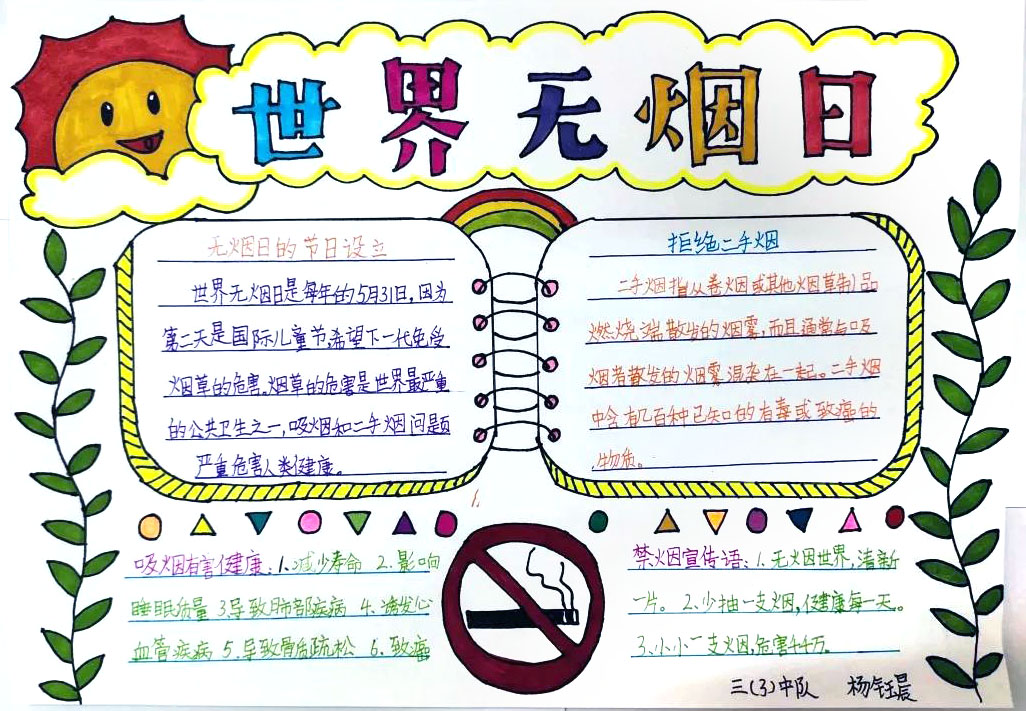 世界无烟日
无烟日的节日设立
世界无烟日是每年的5月31日,因为
第二天是国际儿童节,希望下一代免受
烟草的危害。烟草的危害是世界最严重
的公共卫生之一,吸烟和二手烟问题
严重危害人类健康。
拒绝二手烟
二手烟指从卷烟或其他烟草制品
燃烧端散发的烟雾,而且通常与吸
烟者散发的烟雾混杂在一起。二手烟
中含有几百种已知的有毒或致癌的
物质。
吸烟有害健康:1.减少寿命 2.影响
睡眠质量 3.导致肺部疾病 4.诱发心
血管疾病 5.导致骨质疏松 6.致癌
禁烟宣传语:1.无烟世界,清新
一片。 2.少抽一支烟,健康每一天。
3.小小一支烟,危害千千万。
三(3)中队 杨钰晨